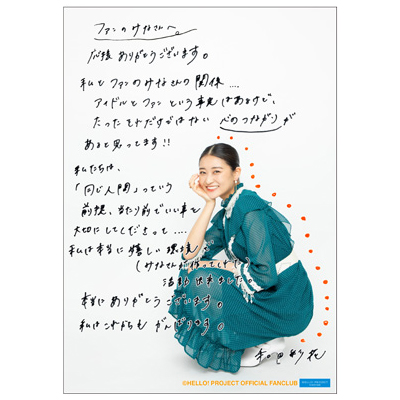 ファンのみなさんへ。
応援ありがとうございます。
私とファンのみなさんの関係....
アイドルとファンという事実はあるけど、
たったそれだけではない 心のつながりが
あると思ってます!!
私たちは、
「同じ人間」っていう
前提、当たり前でいい事を
大切にしてくださって....
私は本当に嬉しい環境で
(みなさんが作ってくれた)
活動出来ました。
本当にありがとうございます。
私はこれからもがんばります。
和田彩花
©HELLO! PROJECT OFFICIAL FANCLUB
HELLO! PROJECT